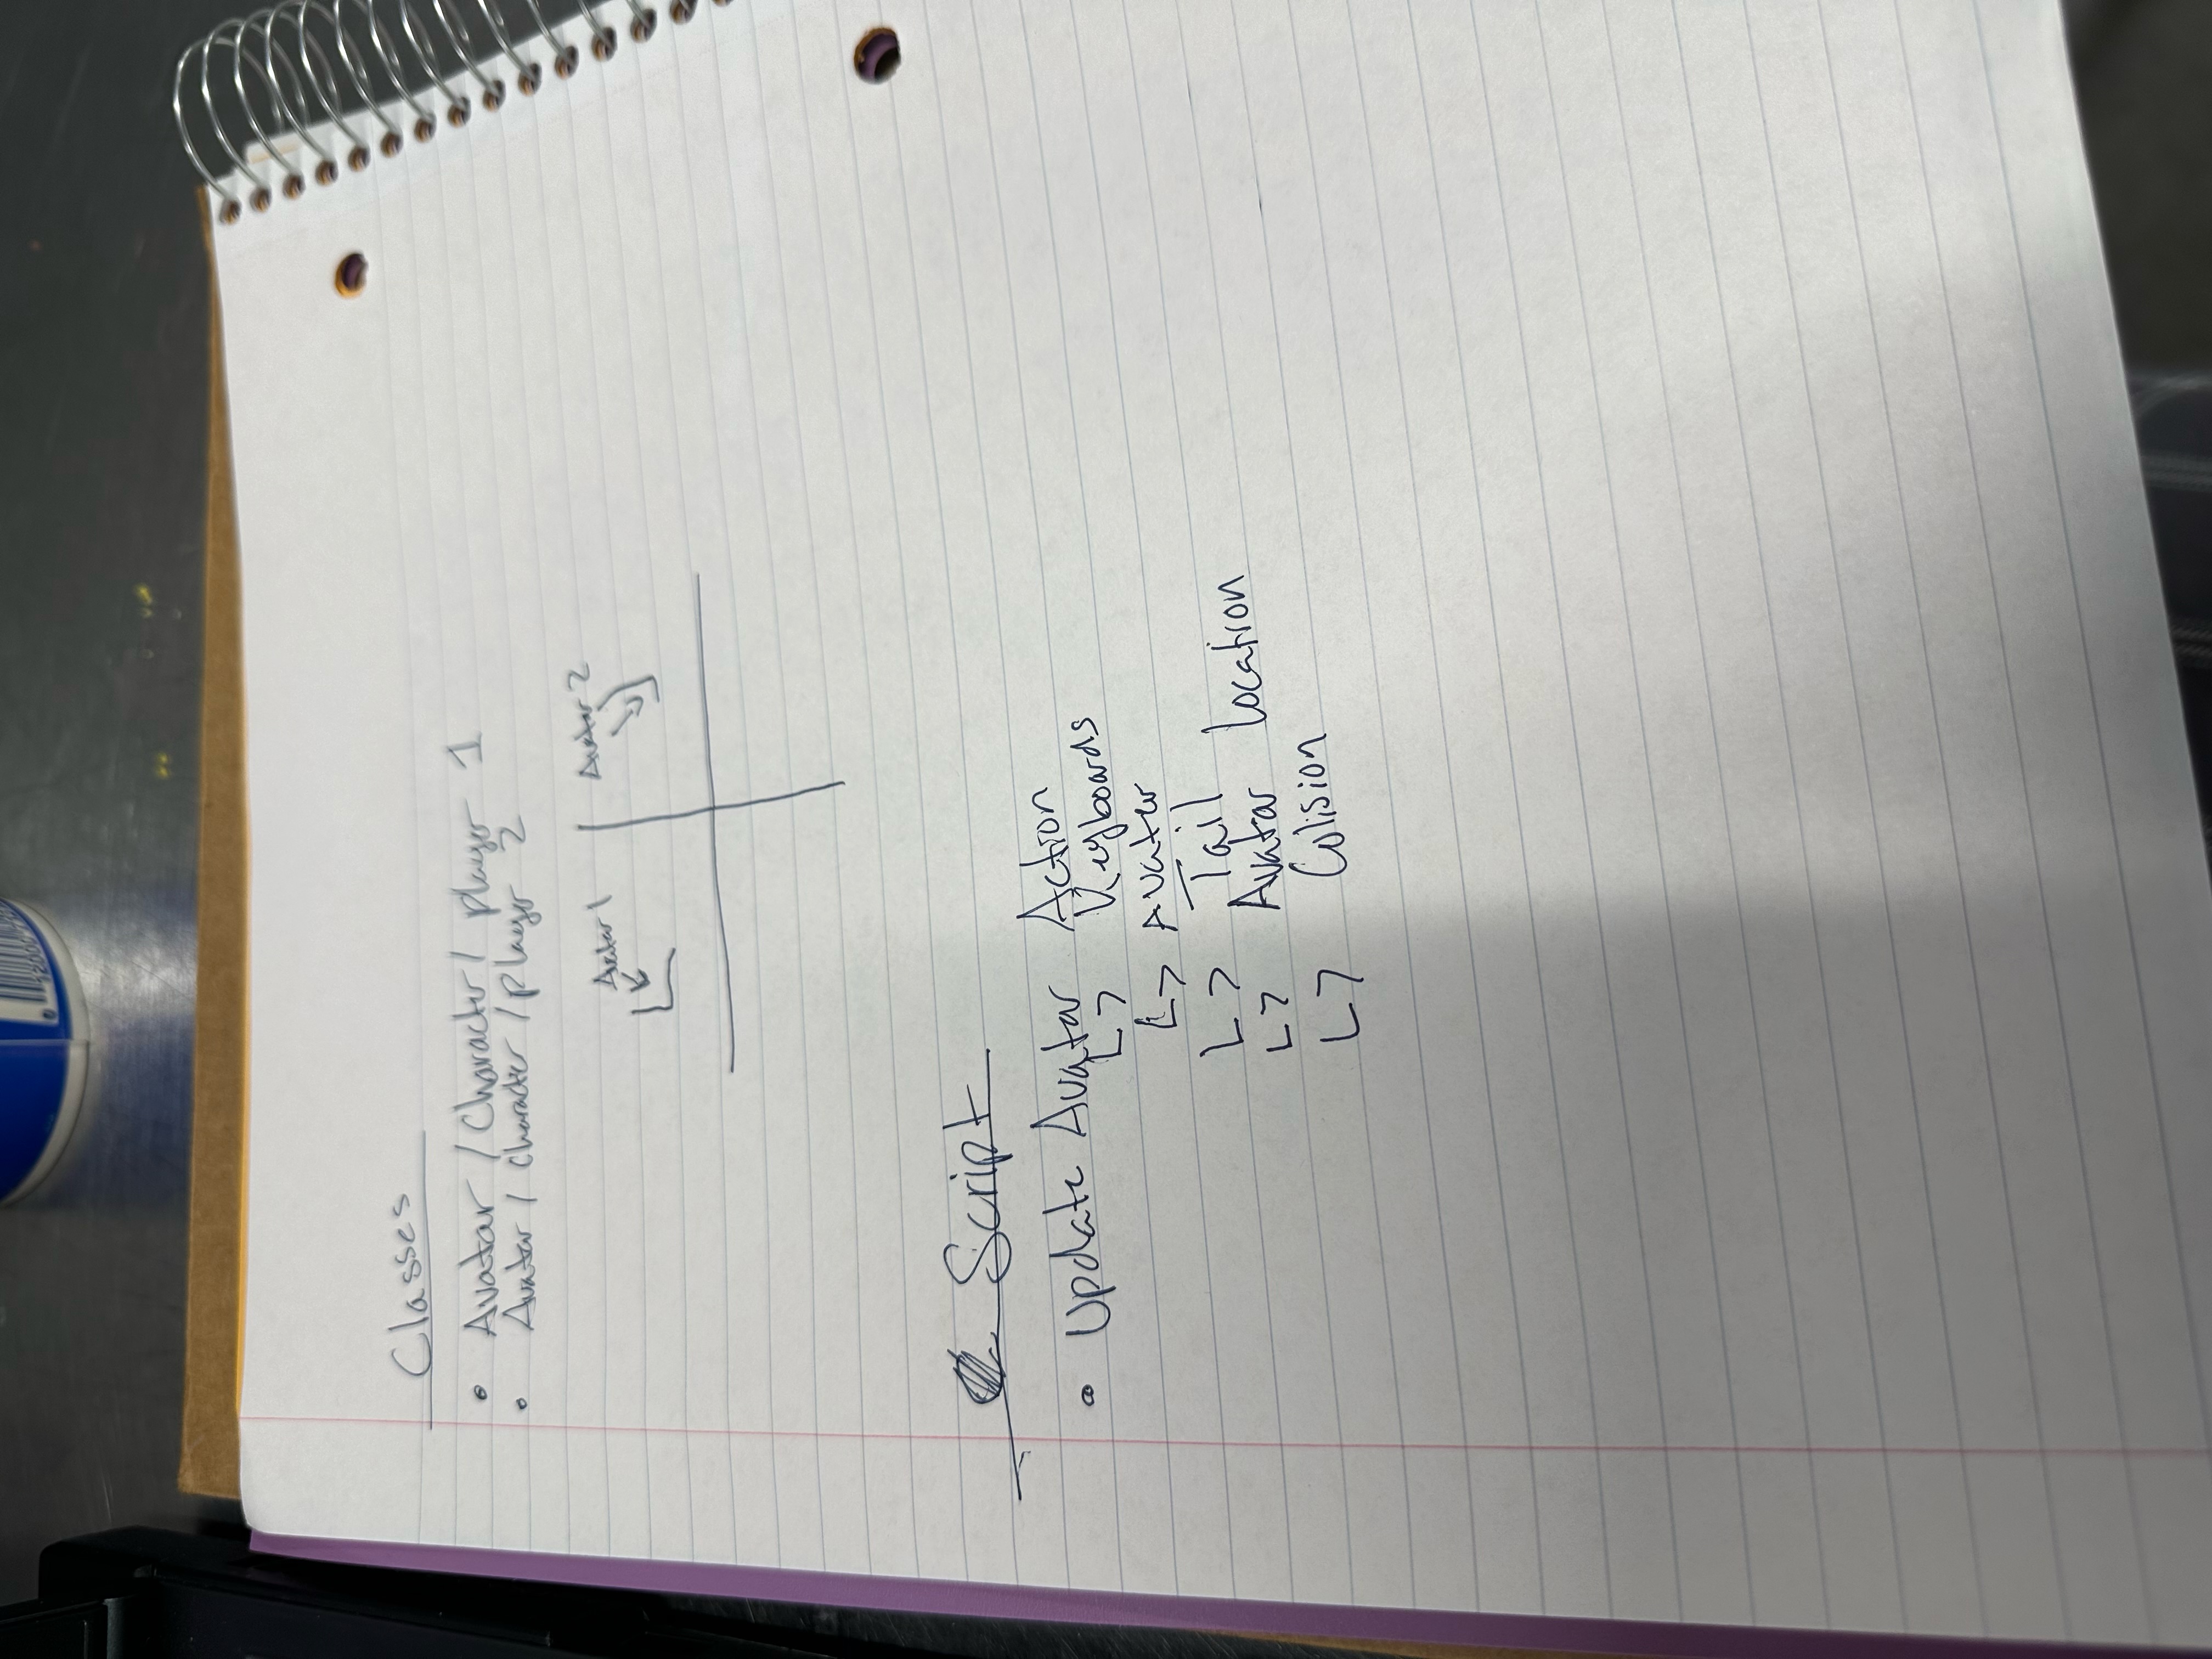 Classes
• Avatar / Character / player 1
• Avatar / Character / player 2
Avatar 1
Avatar 2
Script
• Update Avatar Action
↳ Keyboards
↳ Avatar
↳ Tail
↳ Avatar Location
↳ Colision